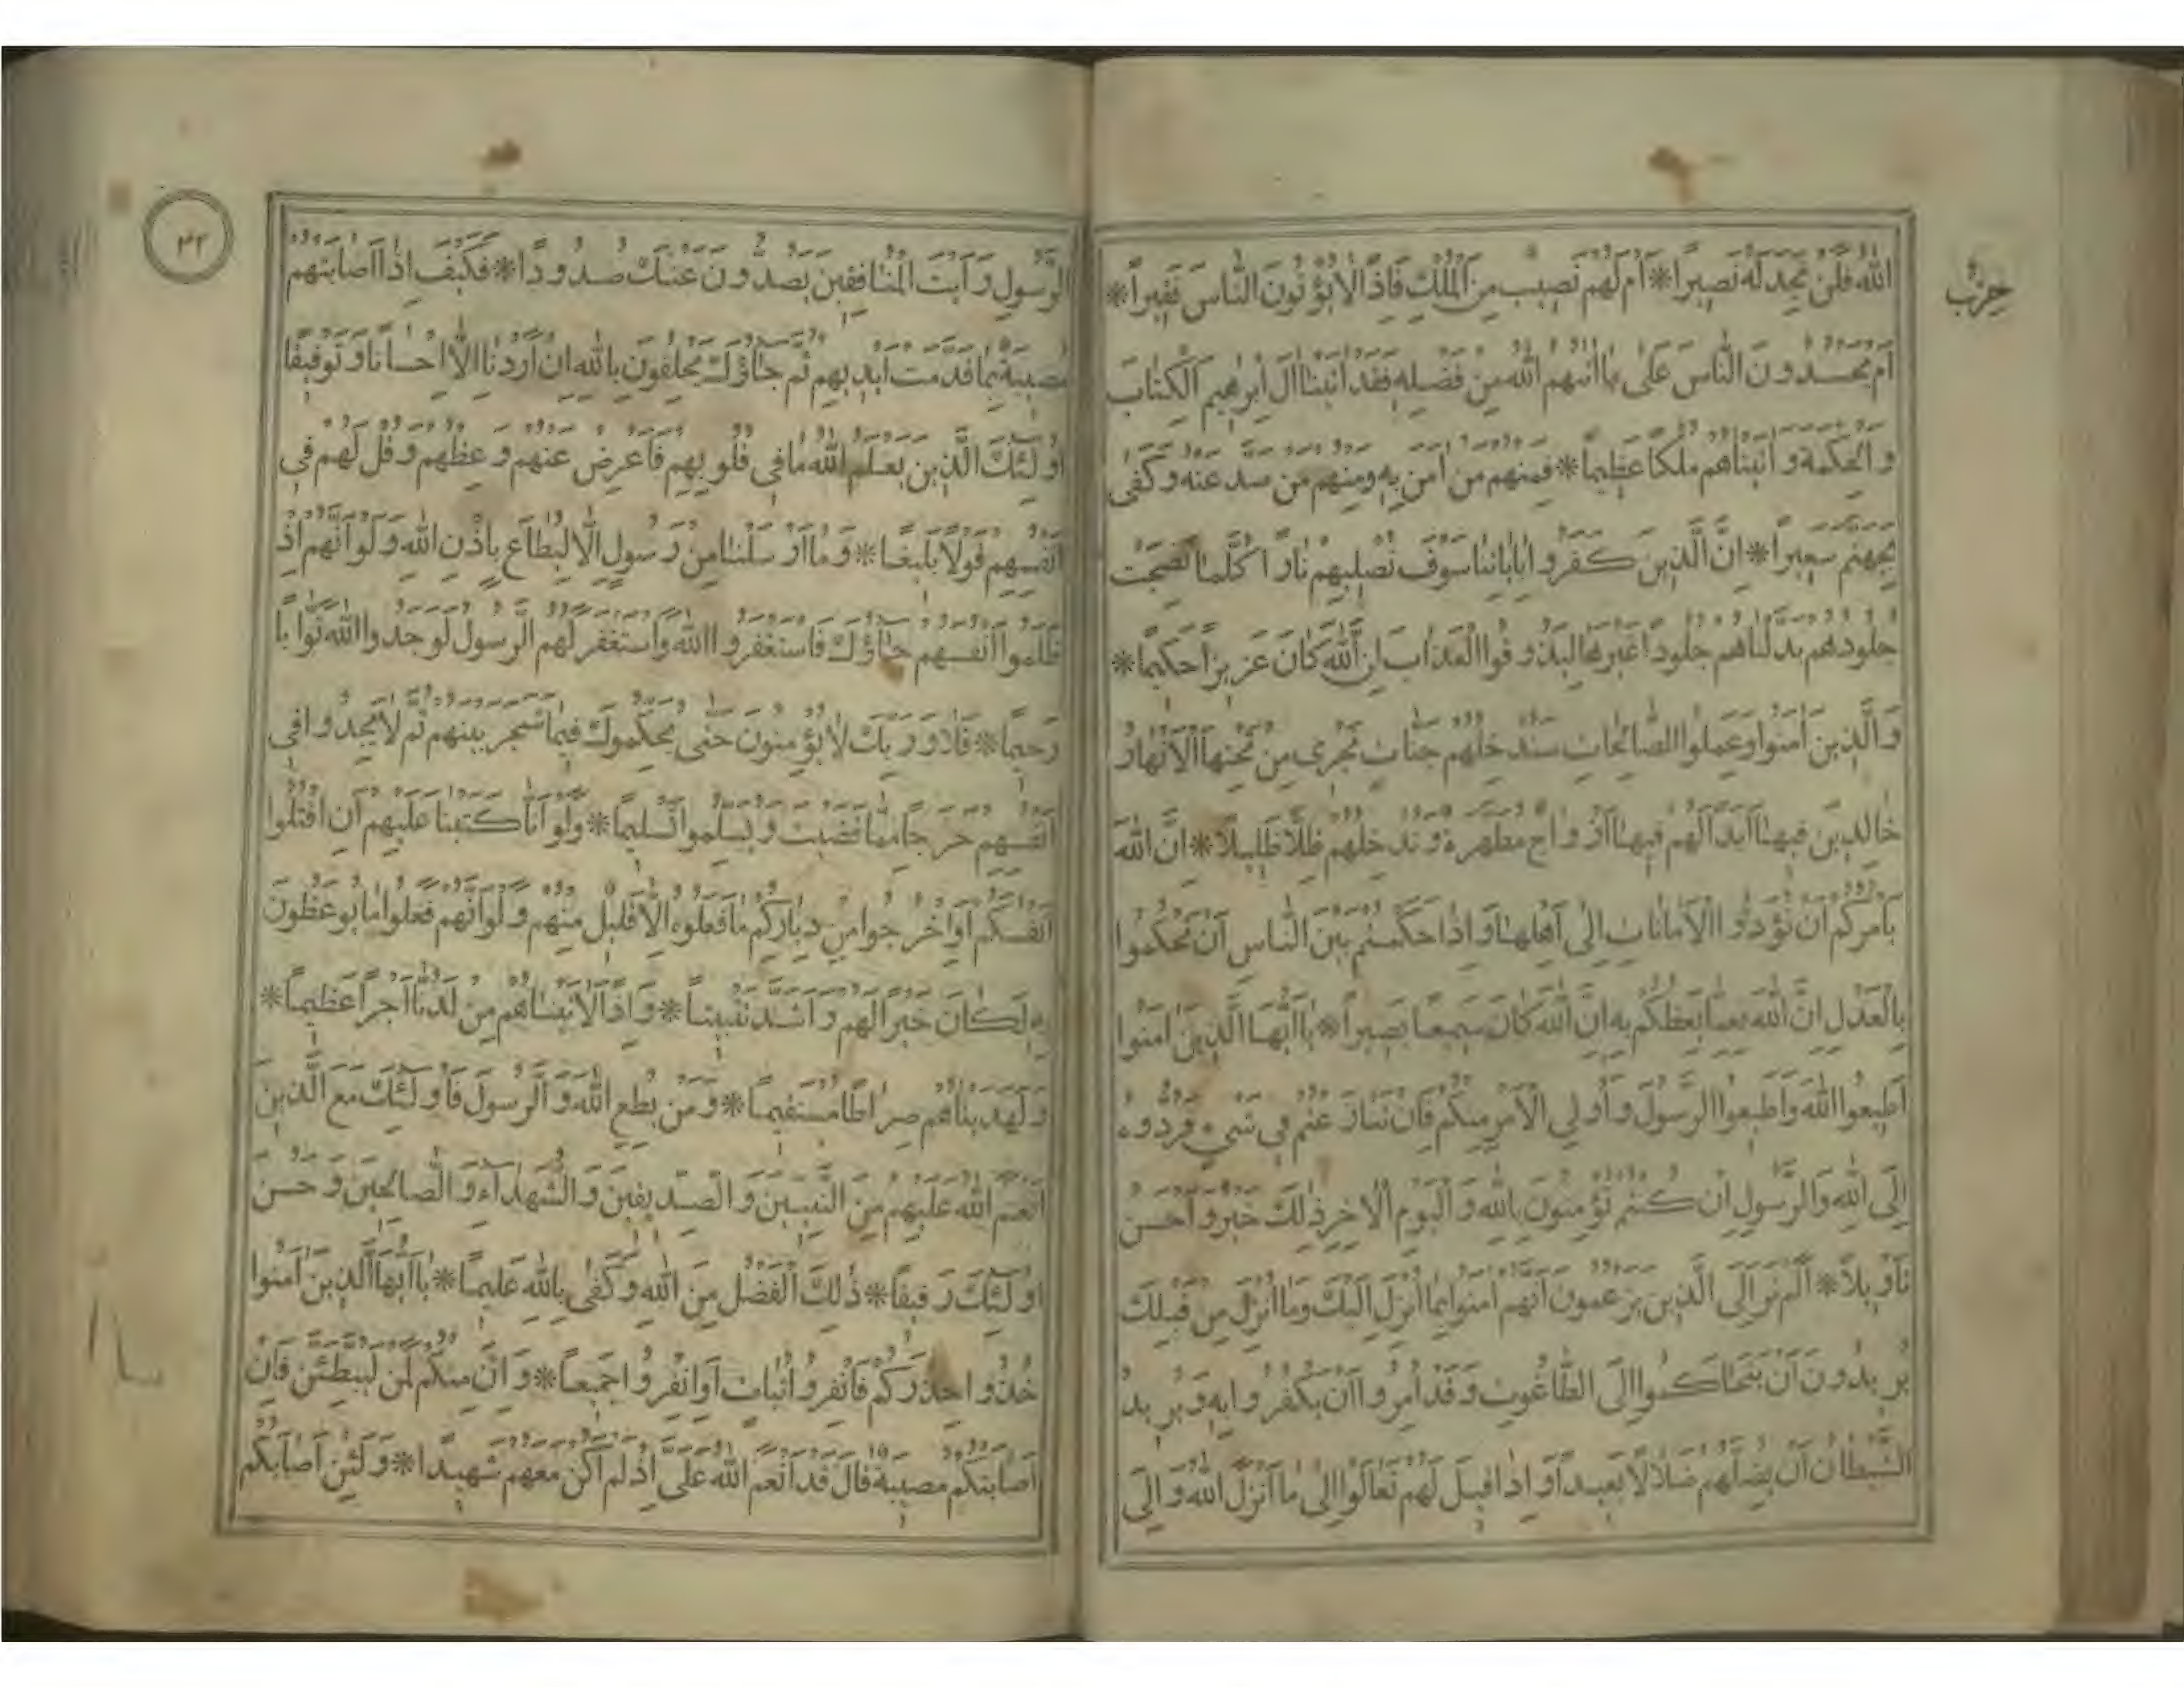 حزب
الله فلن تجد له نصيرا * ام لهم نصيب من الملك فاذا لا يؤتون الناس نقيرا *
ام يحسدون الناس على ما اتيهم الله من فضله فقد اتينا ال ابرهيم الكتاب
والحكمة واتيناهم ملكا عظيما * فمنهم من امن به ومنهم من صد عنه وكفى
بجهنم سعيرا * ان الذين كفروا باياتنا سوف نصليهم نارا كلما نضجت
جلودهم بدلناهم جلودا غيرها ليذوقوا العذاب ان الله كان عزيزا حكيما *
والذين امنوا وعملوا الصالحات سندخلهم جنات تجري من تحتها الانهار
خالدين فيها ابدا لهم فيها ازواج مطهرة وندخلهم ظلا ظليلا * ان الله
يامركم ان تؤدوا الامانات الى اهلها واذا حكمتم بين الناس ان تحكموا
بالعدل ان الله نعما يعظكم به ان الله كان سميعا بصيرا * يا ايها الذين امنوا
اطيعوا الله واطيعوا الرسول واولي الامر منكم فان تنازعتم في شيء فردوه
الى الله والرسول ان كنتم تؤمنون بالله واليوم الاخر ذلك خير واحسن
تاويلا * الم تر الى الذين يزعمون انهم امنوا بما انزل اليك وما انزل من قبلك
يريدون ان يتحاكموا الى الطاغوت وقد امروا ان يكفروا به ويريد
الشيطان ان يضلهم ضلالا بعيدا واذا قيل لهم تعالوا الى ما انزل الله والى
٤٢
الرسول رايت المنافقين يصدون عنك صدودا * فكيف اذا اصابتهم
مصيبة بما قدمت ايديهم ثم جاؤك يحلفون بالله ان اردنا الا احسانا وتوفيقا
اولئك الذين يعلم الله ما في قلوبهم فاعرض عنهم وعظهم وقل لهم في
انفسهم قولا بليغا * وما ارسلنا من رسول الا ليطاع باذن الله ولو انهم اذ
ظلموا انفسهم جاؤك فاستغفروا الله واستغفر لهم الرسول لوجدوا الله توابا
رحيما * فلا وربك لا يؤمنون حتى يحكموك فيما شجر بينهم ثم لا يجدوا في
انفسهم حرجا مما قضيت ويسلموا تسليما * ولو انا كتبنا عليهم ان اقتلوا
انفسكم او اخرجوا من دياركم ما فعلوه الا قليل منهم ولو انهم فعلوا ما يوعظون
به لكان خيرا لهم واشد تثبيتا * واذا لاتيناهم من لدنا اجرا عظيما *
ولهديناهم صراطا مستقيما * ومن يطع الله والرسول فاولئك مع الذين
انعم الله عليهم من النبيين والصديقين والشهداء والصالحين وحسن
اولئك رفيقا * ذلك الفضل من الله وكفى بالله عليما * يا ايها الذين امنوا
خذوا حذركم فانفروا ثبات او انفروا جميعا * وان منكم لمن ليبطئن فان
اصابتكم مصيبة قال قد انعم الله على اذ لم اكن معهم شهيدا * ولئن اصابكم